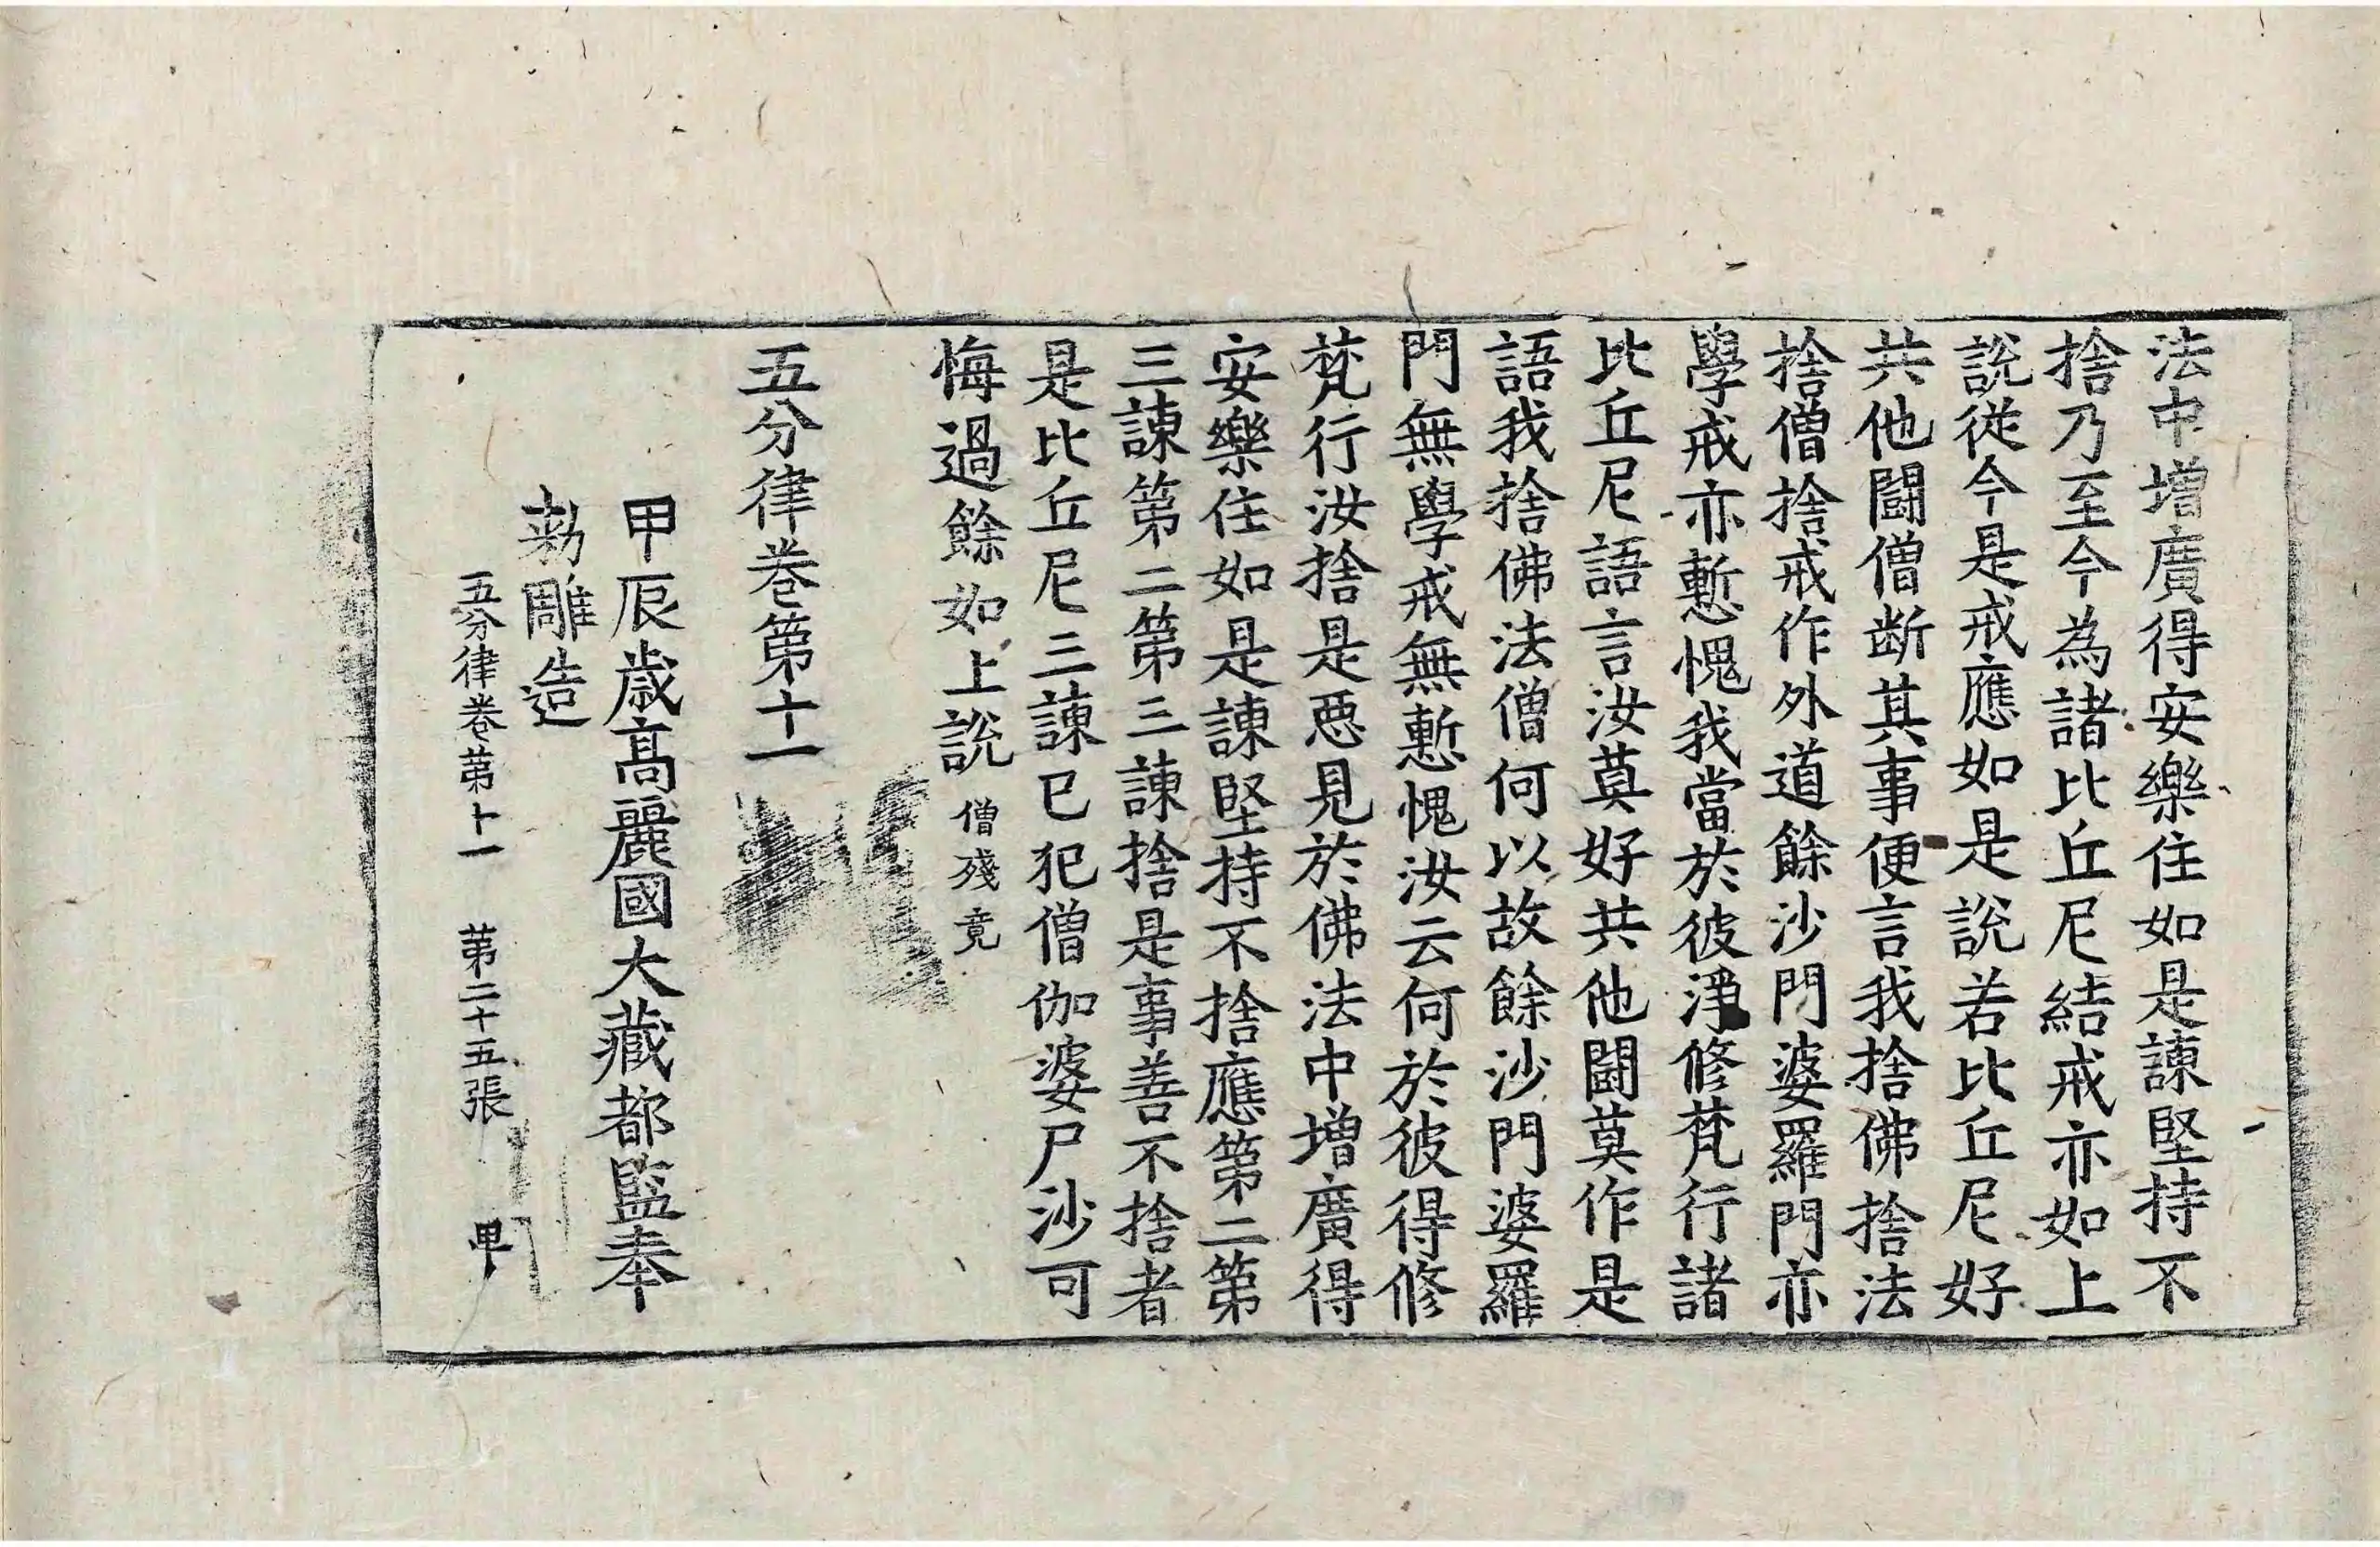 法中增廣得安樂住如是諫堅持不
捨乃至今為諸比丘尼結戒亦如上
說從今是戒應如是說若比丘尼好
共他鬪僧断其事便言我捨佛捨法
捨僧捨戒作外道餘沙門婆羅門亦
學戒亦慙愧我當於彼淨修梵行諸
比丘尼語言汝莫好共他鬪莫作是
語我捨佛法僧何以故餘沙門婆羅
門無學戒無慙愧汝云何於彼得修
梵行汝捨是惡見於佛法中增廣得
安樂住如是諫堅持不捨應第二第
三諫第二第三諫捨是事善不捨者
是比丘尼三諫已犯僧伽婆尸沙可
悔過餘如上說 僧殘竟
五分律卷第十一
甲辰歲高麗國大藏都監奉
勑雕造
五分律卷第十一 第二十五張 甲